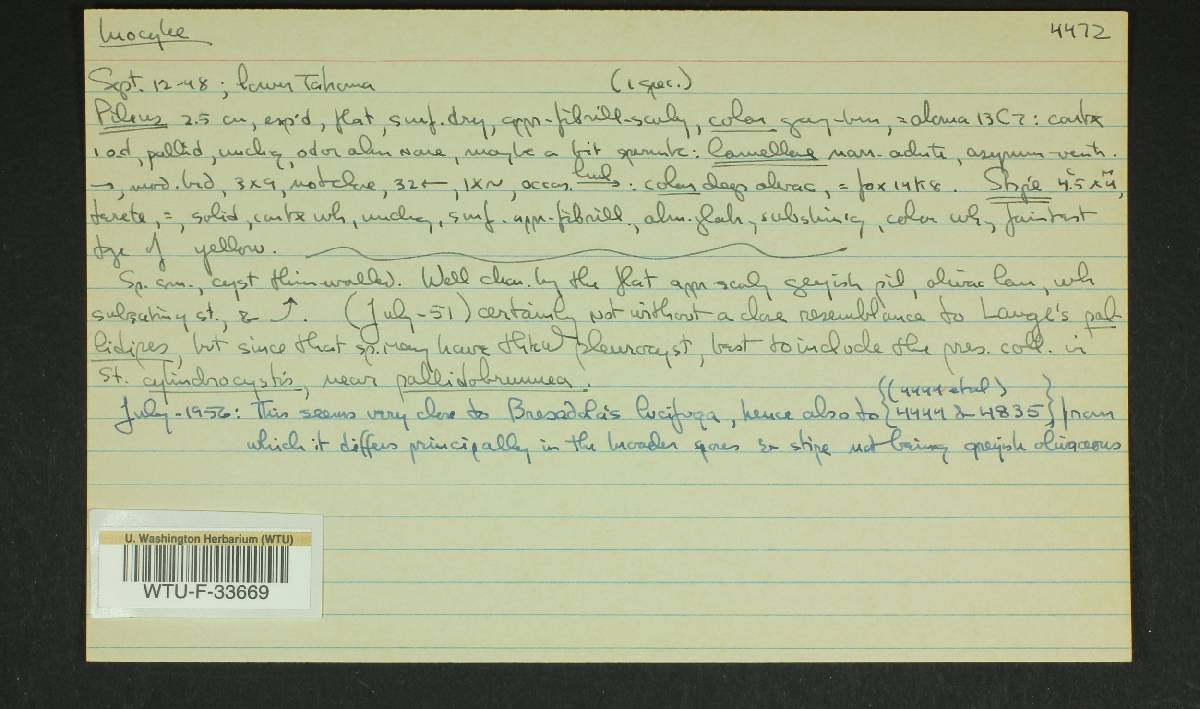 Inocybe 4472
Sept. 12-48; lower Tahoma (1 spec.)
Pileus 2.5 cm, exp'd, flat, surf. dry, appr.-fibrill-scaly, color gray-brn, = aloma 13C7: contx
1 o.d, pallid, unchg, odor alm none, maybe a bit spermtc: lamellae narr. adnte, asymm-ventr.
→, mod. brd, 3x9, not close, 32←, 1x~, occas. : color deep olivac, = fox 14K8. Stipe 4.5 x 4,
terete, =, solid, contx wh, unchg, surf. appr-fibrill., alm. glab, subshing, color wh, faintest
tge of yellow.
Sp. sm., cyst thin-walled. Well char. by the flat appr scaly greyish pil, olivac lam, wh
subsatiny st., & ↗. (July-51) certainly not without a close resemblance to Lange's pal-
lidipes, but since that sp. may have thkwd pleurocyst, best to include the pres. coll. in
st. cylindrocystis, near pallidobrunnea.
July-1956: This seems very close to Bresadola's lucifuga, hence also to {((4444 et al) 4444 & 4835}, from
which it differs principally in the broader spores & stipe not being greyish olivaceous
U. Washington Herbarium (WTU)
WTU-F-33669